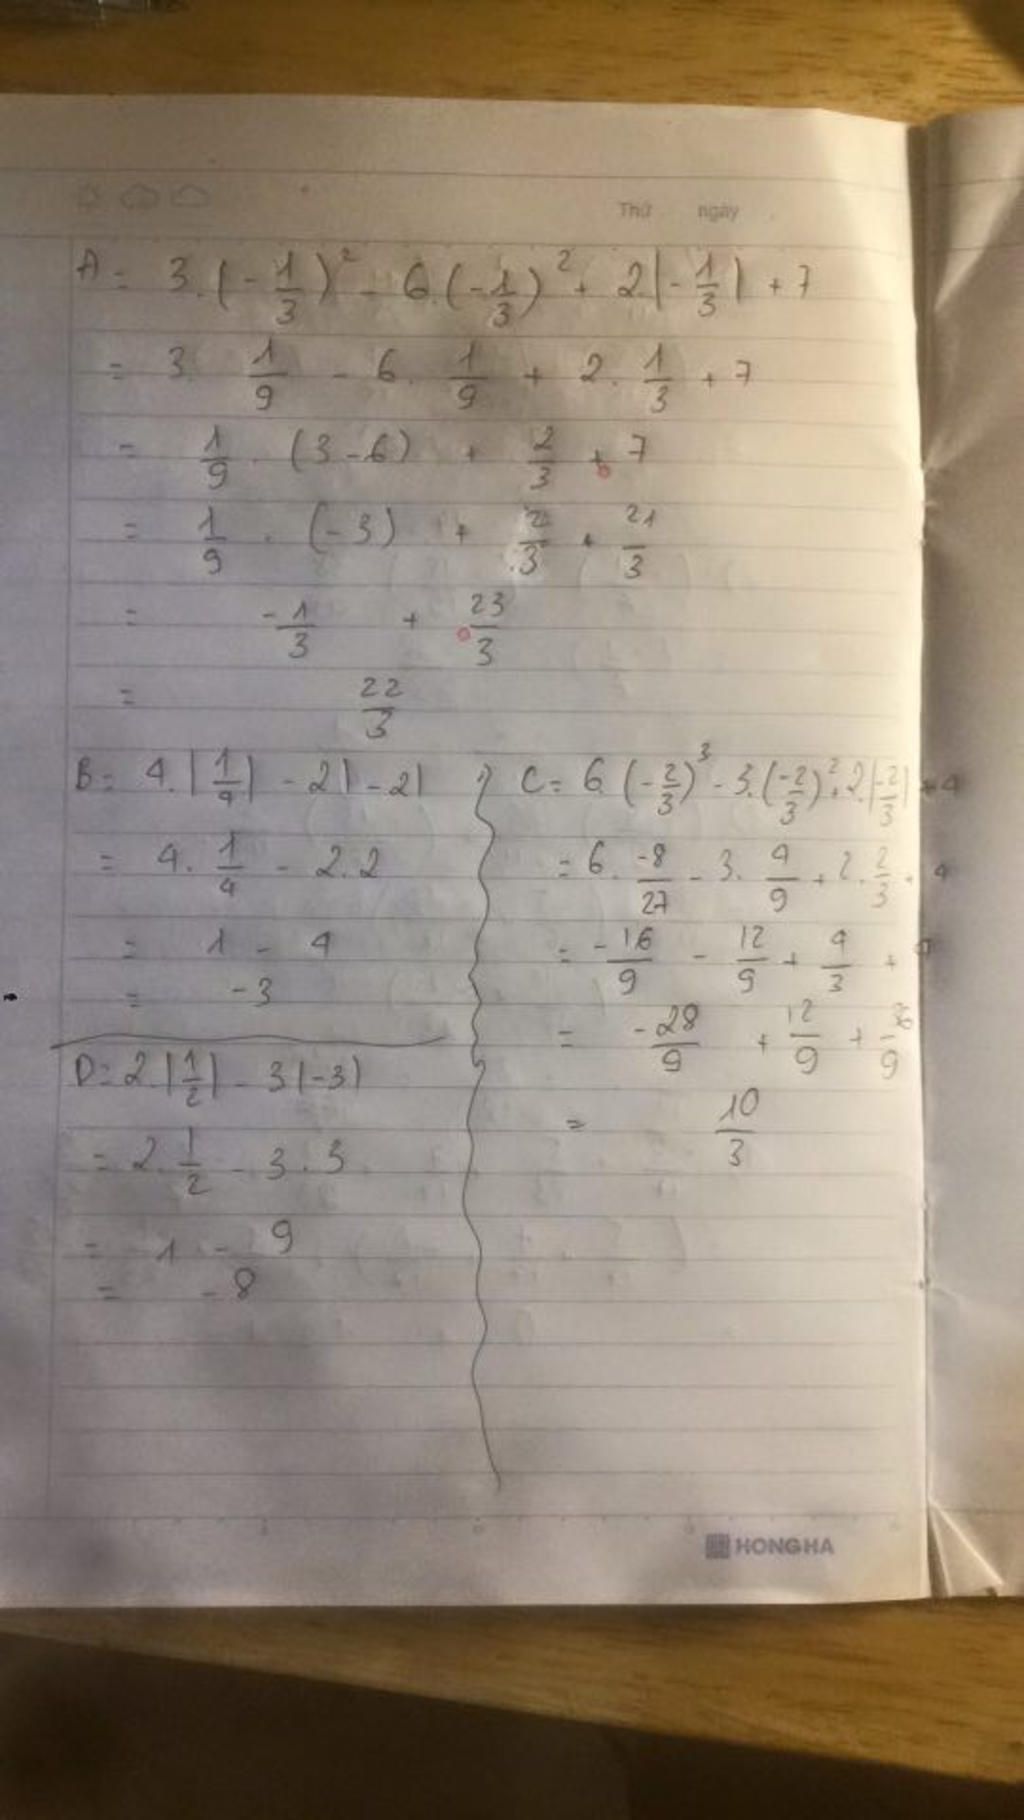 Thứ ngày
A = 3.(-1/3)² - 6.(-1/3)² + 2|-1/3| + 7
= 3. 1/9 - 6. 1/9 + 2. 1/3 + 7
= 1/9 . (3-6) + 2/3 + 7
= 1/9 . (-3) + 2/3 + 21/3
= -1/3 + 23/3
= 22/3
B = 4.|1/4| - 2|-2|
= 4. 1/4 - 2.2
= 1 - 4
= -3
D = 2.|1/2| - 3|-3|
= 2. 1/2 - 3.3
= 1 - 9
= -8
C = 6.(-2/3)³ - 3.(-2/3)² + 2.|-2/3| + 4
= 6. -8/27 - 3. 4/9 + 2. 2/3 + 4
= -16/9 - 12/9 + 4/3 +
= -28/9 + 12/9 + 36/9
= 10/3
HONG HA